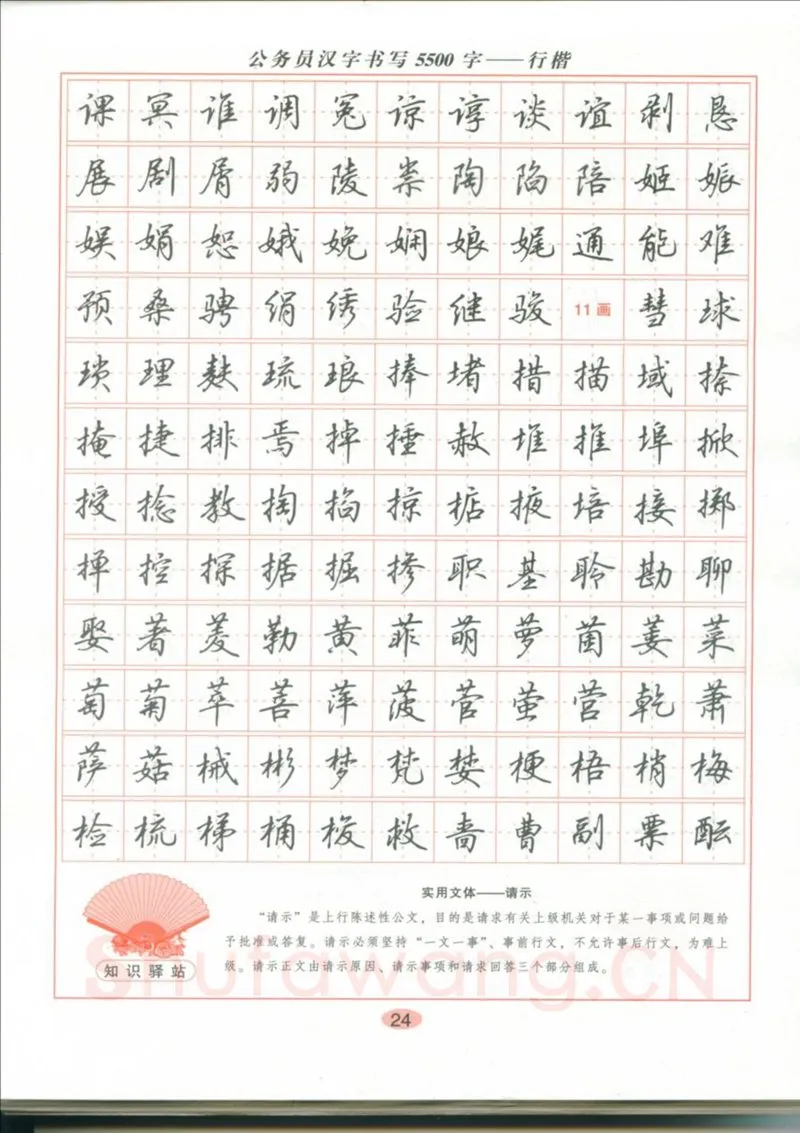 公务员汉字书写5500字——行楷
课冥谁调冤谅谆谈谊剥恳
展剧屑弱陵祟陶陷陪姬娠
娱娟恕娥娩娴娘娓通能难
预桑骋绢绣验继骏11画彗球
琐理麸琉琅捧堵措描域捺
掩捷排焉掉捶赦堆推埠掀
授捻教掏掐掠掂掖培接掷
掸控探据掘掺职基聆勘聊
娶著菱勒黄菲萌萝菌萎菜
萄菊萃菩萍菠菅萤营乾萧
萨菇械彬梦梵婪梗梧梢梅
检梳梯桶梭救啬曹副票酝
实用文体——请示
“请示”是上行陈述性公文，目的是请求有关上级机关对于某一事项或问题给
予批准或答复。请示必须坚持“一文一事”、事前行文，不允许事后行文，为难上
级。请示正文由请示原因、请示事项和请求回答三个部分组成。
知识驿站
Shufawang.CN
24